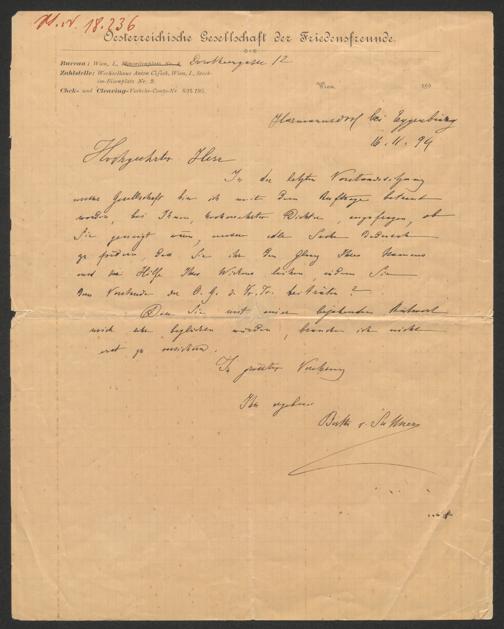 H.N. 18.236
Oesterreichische Gesellschaft der Friedensfreunde.
Bureau: Wien, I., Dorotheergasse 12
Zahlstelle: Wechselhaus Anton Czjžek, Wien, I., Stock-
im-Eisenplatz Nr. 2.
Chek- und Clearing-Verkehr-Conto-Nr.
Wien, 189
Harmannsdorf bei Eggenburg
16.11.94
Hochgeehrter Herr
In der letzten Vorstandssitzung
unserer Gesellschaft bin ich mit dem Auftrage betraut
worden, bei Ihnen, hochverehrter Dichter, anzufragen, ob
Sie geneigt wären, unserer edlen Sache dadurch
zu fördern, dass Sie ihr den Glanz Ihres Namens
und die Hilfe Ihres Wirkens leihen, indem Sie
dem Vorstande der Ö. G. d. Fr. Fr. beiträten?
Dass Sie mit einer bejahenden Antwort
mich sehr beglücken würden, brauche ich nicht
erst zu versichern.
In grösster Verehrung
Ihre ergebene
Bertha v. Suttner